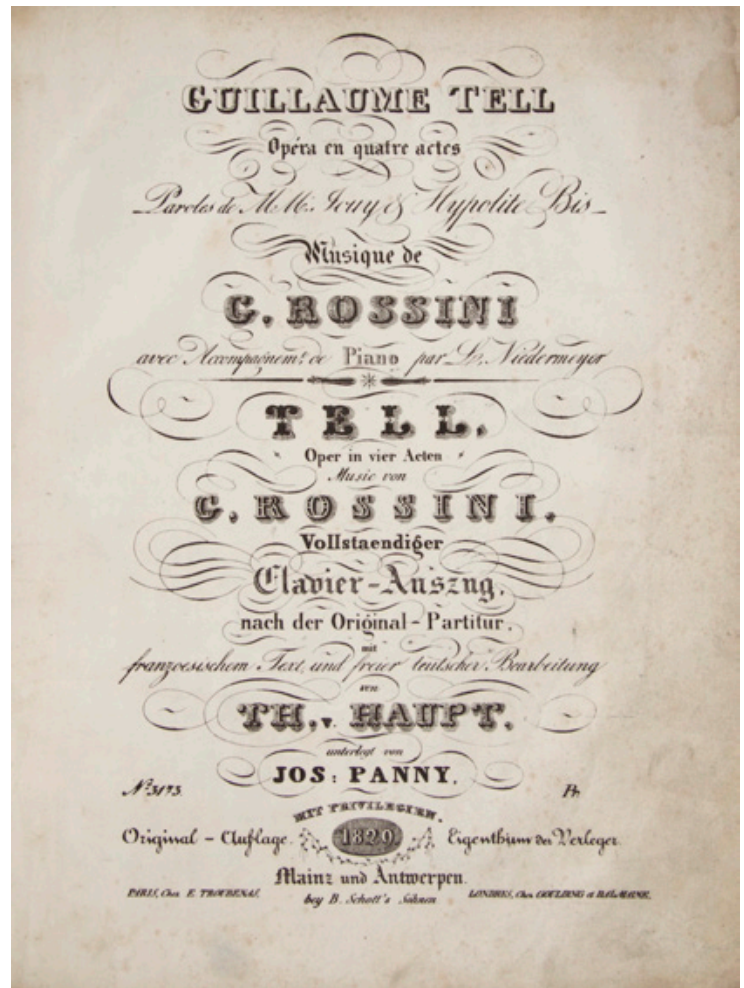 GUILLAUME TELL
Opéra en quatre actes
Paroles de M.M. Jouy & Hypolite Bis
Musique de
G. ROSSINI
avec Accompagnem.t de Piano par L. Niedermeyer
TELL.
Oper in vier Acten
Music von
G. ROSSINI.
Vollstaendiger
Clavier-Auszug,
nach der Original-Partitur,
mit
franzoesischem Text, und freier teutscher Bearbeitung
von
TH. v. HAUPT.
unterlegt von
JOS: PANNY.
No. 3173.
MIT PRIVILEGIEN.
Original - Auflage. 1829 Eigenthum der Verleger.
Mainz und Antwerpen.
bey B. Schott's Söhnen
PARIS, Chez E. TROUPENAS. LONDRES, Chez GOULDING et DALMAINE.